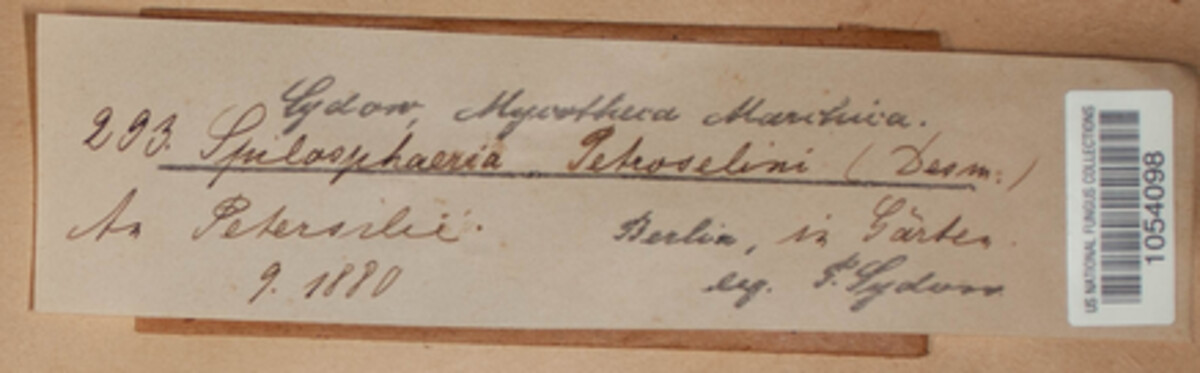 Sydow, Mycotheca Marchica.
293. Spilosphaeria Petroselini (Desm.)
An Petersilie. Berlin, in Gärten.
9. 1880 leg. P. Sydow
US NATIONAL FUNGUS COLLECTIONS
1054098